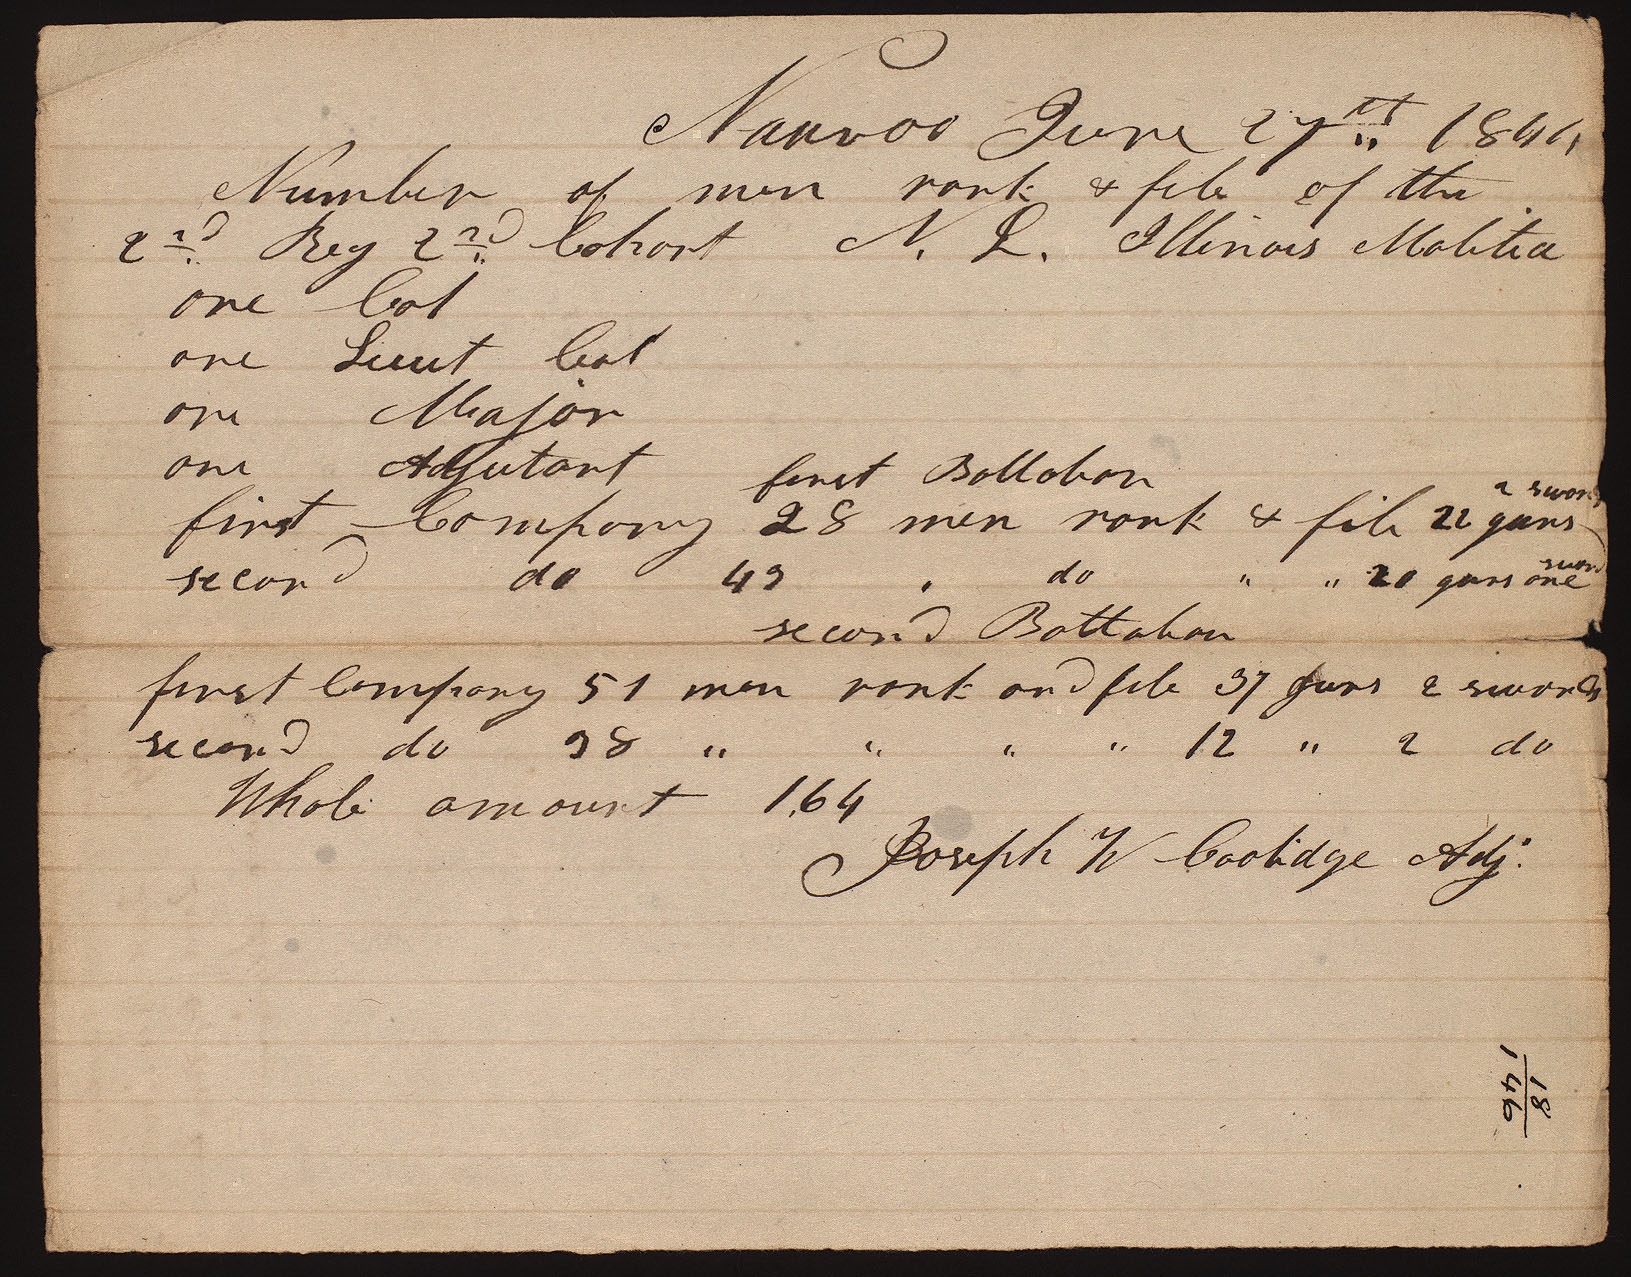 Nauvoo June 27th 1844
Number of men rank & file of the
2nd Reg 2nd Cohort N. L. Illinois Malitia
one Col
one Lieut Col
one Major
one Adjutant
first Battalion
first Company 28 men rank & file 22 guns 2 swords
second do 43 " do " " 20 guns one sword
second Battalion
first Company 51 men rank and file 37 guns 2 swords
second do 38 " " " " 12 " 2 do
Whole amount 164
Joseph W Coolidge Adj.
18
146